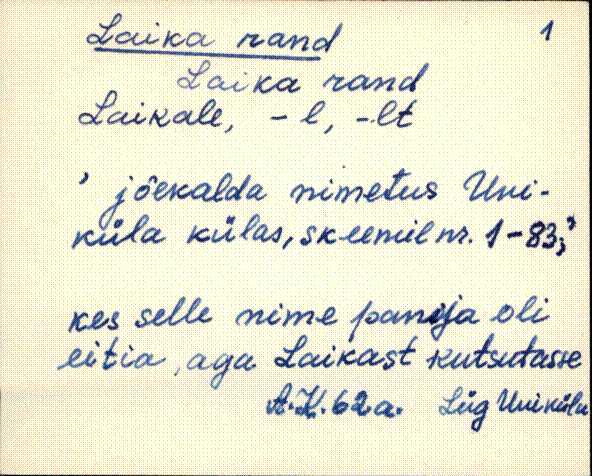 Laika rand 1
Laika rand
Laikale, - l, -lt
' jõekalda nimetus Uni-
küla külas, skeemil nr. 1-83;'
kes selle nime panija oli
ei tia, aga Laikast kutsutasse
A.K. 62 a. Lüg Uniküla